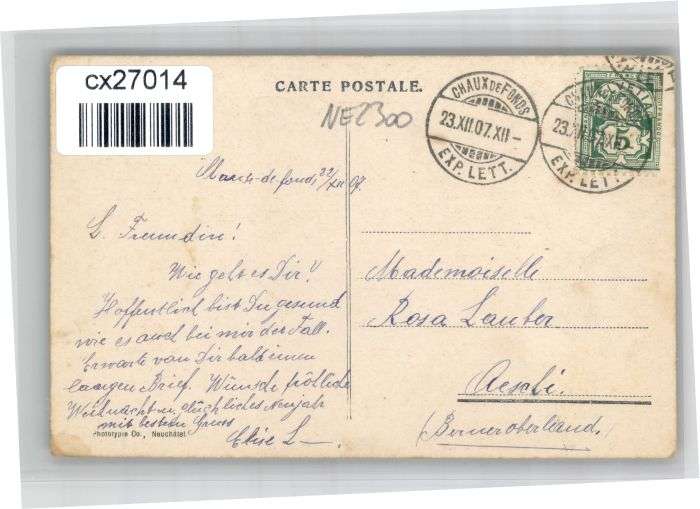 cx27014
CARTE POSTALE.
NE2300
CHAUX DE FONDS
23.XII.07.XII-
EXP. LETT.
CHAUX DE FONDS
23.XII
EXP. LETT.
5
Chaux-de-fonds, 22/XII 07.
L. Freundin!
Wie geht es Dir?
Hoffentlich bist Du gesund
wie es auch bei mir der Fall.
Erwarte von Dir bald einen
laangen Brief. Wünsche fröhliche
Weihnachten, glückliches Neujahr
mit bestem Gruss
Elise L
Phototypie Co., Neuchâtel
Mademoiselle
Rosa Lauber
Aeschi.
(Berneroberland.)